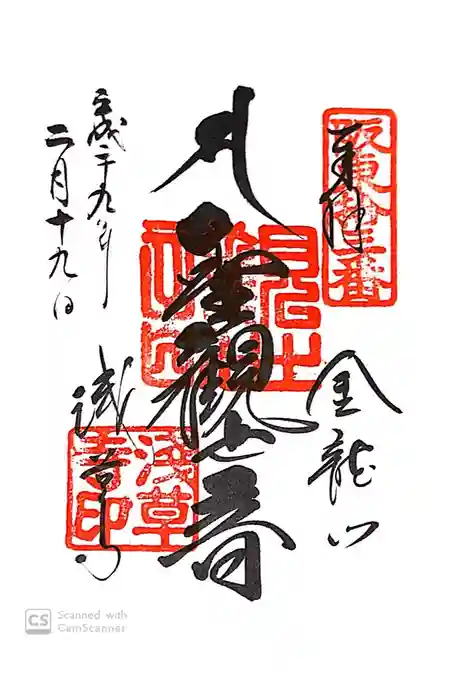 阪東拾三番
奉拝
金龍山
聖觀世音
淺草寺
淺草寺印
平成二十九年
二月十九日
CS Scanned with
CamScanner